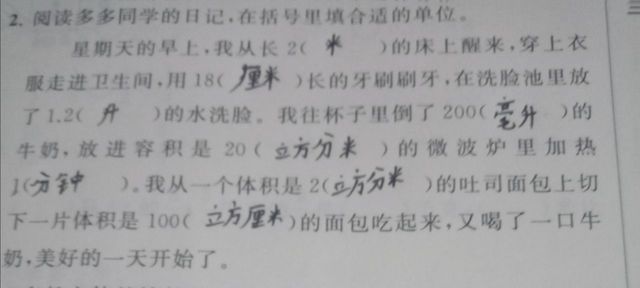 2. 阅读多多同学的日记,在括号里填合适的单位。
星期天的早上,我从长2( 米 )的床上醒来,穿上衣
服走进卫生间,用18( 厘米 )长的牙刷刷牙,在洗脸池里放
了1.2( 升 )的水洗脸。我往杯子里倒了200( 毫升 )的
牛奶,放进容积是20( 立方分米 )的微波炉里加热
1(分钟 )。我从一个体积是2(立方分米 )的吐司面包上切
下一片体积是100( 立方厘米 )的面包吃起来,又喝了一口牛
奶,美好的一天开始了。